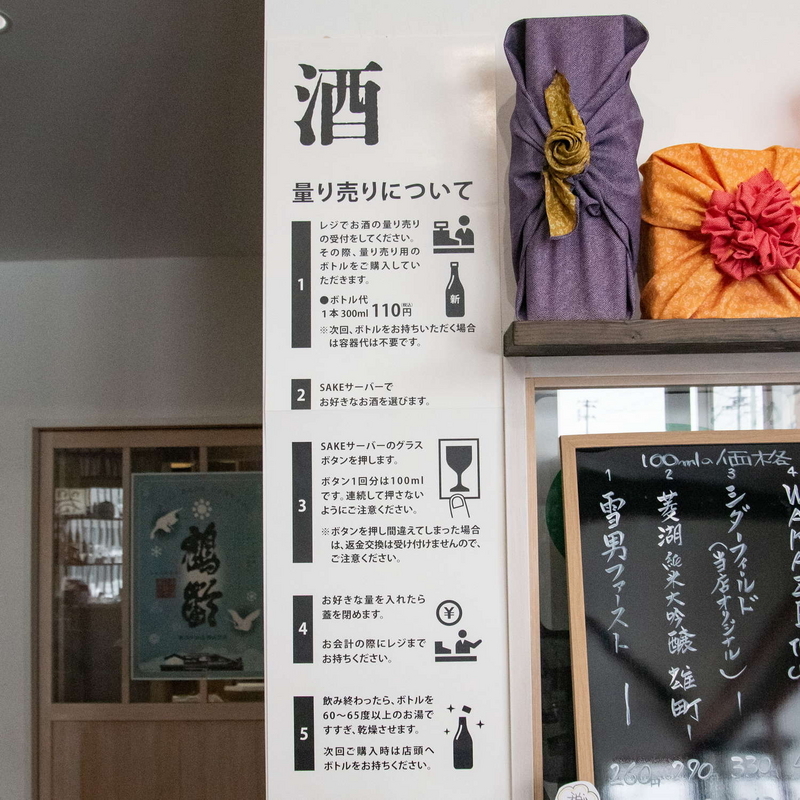 酒
量り売りについて
1
レジでお酒の量り売り
の受付をしてください。
その際、量り売り用の
ボトルをご購入してい
ただきます。
●ボトル代
1本300ml 110円(税込)
※次回、ボトルをお持ちいただく場合
は容器代は不要です。
新
2
SAKEサーバーで
お好きなお酒を選びます。
3
SAKEサーバーのグラス
ボタンを押します。
ボタン1回分は100ml
です。連続して押さない
ようにご注意ください。
※ボタンを押し間違えてしまった場合
は、返金交換は受け付けませんので、
ご注意ください。
4
お好きな量を入れたら
蓋を閉めます。
お会計の際にレジまで
お持ちください。
¥
5
飲み終わったら、ボトルを
60〜65度以上のお湯で
すすぎ、乾燥させます。
次回ご購入時は店頭へ
ボトルをお持ちください。
鶴齢
100mlの価格
1 雪男ファースト
260
2 菱湖 純米大吟醸 雄町
290
3 シダーフィールド
(当店オリジナル)
330
4